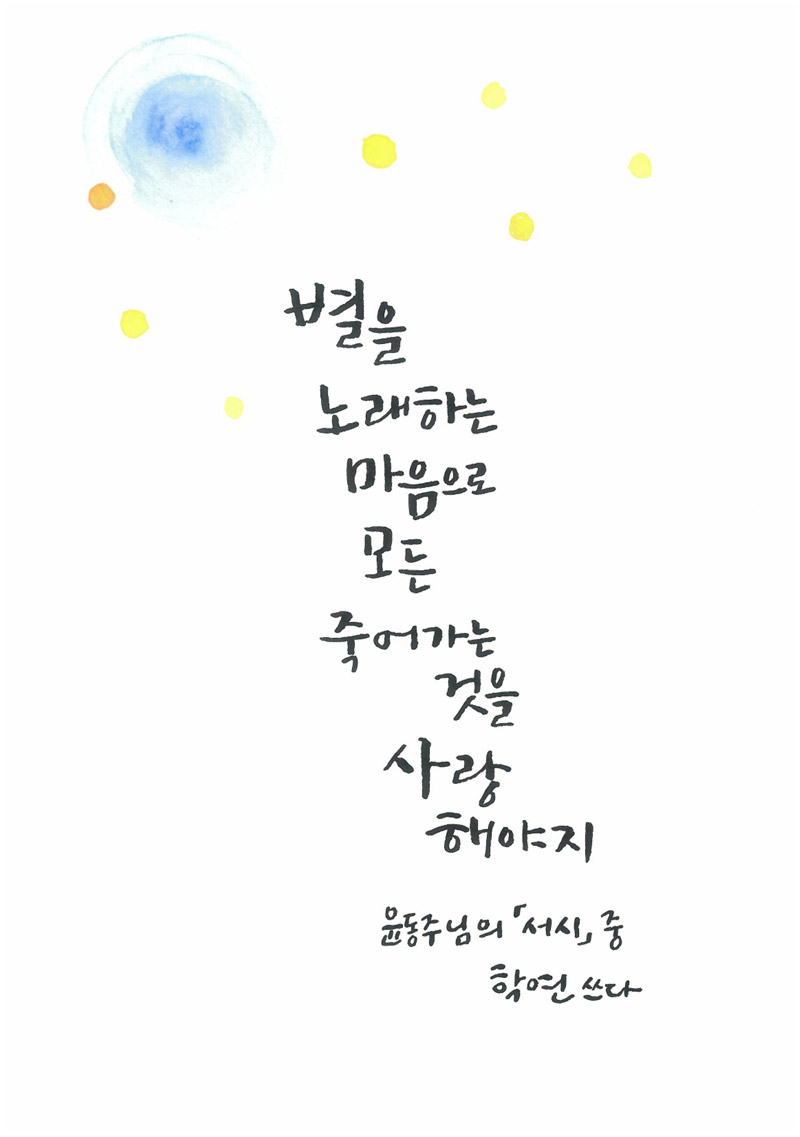 별을
노래하는
마음으로
모든
죽어가는
것을
사랑
해야지
윤동주님의 「서시」 중
학연 쓰다